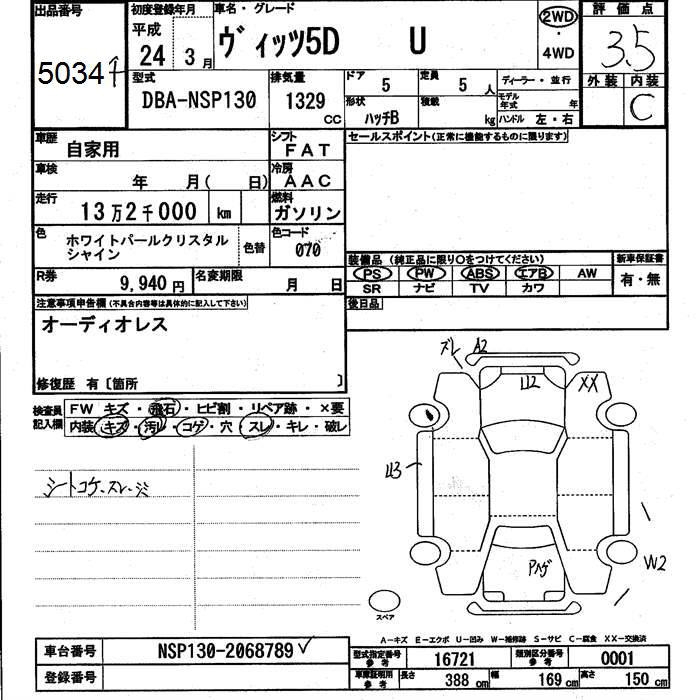 出品番号
50341
初度登録年月
平成
24 3月
車名・グレード
ヴィッツ5D U
2WD
・
4WD
評価点
3.5
外装 内装
C
型式
DBA-NSP130
排気量
1329
CC
ドア
5
定員
5人
形状
ハッチB
積載
kg
ディーラー・並行
モデル年式 年
ハンドル 左・右
車歴
自家用
シフト
FAT
車検
年 月( 日)
冷房
AAC
走行
13万2千000 km
燃料
ガソリン
色
ホワイトパールクリスタル
シャイン
色替
色コード
070
R券
9,940円
名変期限
月 日
セールスポイント(正常に機能するものに限ります)
装備品 (純正品に限り○をつけてください)
PS PW ABS エアB AW
SR ナビ TV カワ
新車保証書
有・無
後日品
注意事項申告欄(不具合内容等は具体的に記入して下さい)
オーディオレス
修復歴 有〔箇所 〕
検査員
記入欄
FW キズ・飛石・ヒビ割・リペア跡・×要
内装 キズ・汚レ・コゲ・穴・スレ・キレ・破レ
シートコゲ、スレ
ズレ A2
U2
XX
U3
W2
Pハゲ
スペア
A－キズ E－エクボ U－凹み W－補修跡 S－サビ C－腐食 XX－交換済
車台番号
NSP130-2068789
登録番号
型式指定番号
参考
16721
類別区分番号
参考
0001
車庫証明用
参考
長さ
388 cm
幅
169 cm
高さ
150 cm